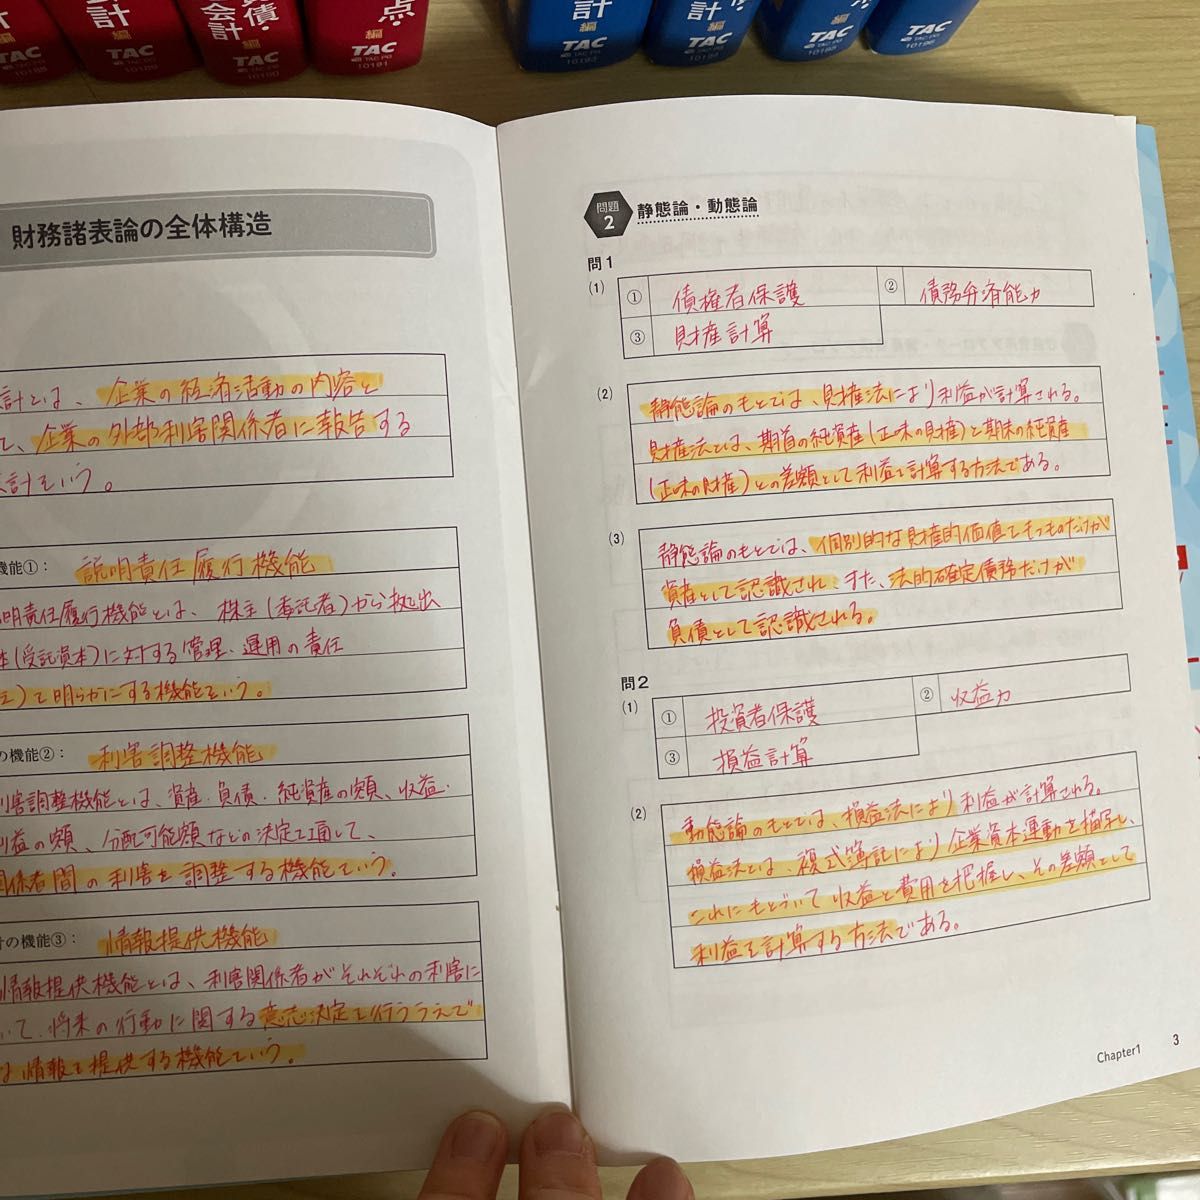 点・
計 編
債・
会計 編
TAC
TAC
TAC
TAC
TAC PG
10189
10190
10191
計
TAC
TAC
TAC
TAC
財務諸表論の全体構造
計とは、企業の経済活動の内容と
て、企業の外部利害関係者に報告する
計をいう。
機能①: 説明責任履行機能
明責任履行機能とは、株主(委託者)から拠出
本(受託資本)に対する管理・運用の責任
)を明らかにする機能をいう。
の機能②: 利害調整機能
利害調整機能とは、資産・負債・純資産の額、収益・
利益の額、分配可能額などの決定を通して、
関係者間の利害を調整する機能をいう。
計の機能③: 情報提供機能
情報提供機能とは、利害関係者がそれぞれの利害に
いて、将来の行動に関する意思決定を行ううえで
な情報を提供する機能をいう。
問題 2 静態論・動態論
問1
(1) ① 債権者保護 ② 債務弁済能力
③ 財産計算
(2) 静態論のもとでは、財産法により利益が計算される。
財産法とは、期首の純資産(正味の財産)と期末の純資産
(正味の財産)との差額として利益を計算する方法である。
(3) 静態論のもとでは、個別的な財産的価値をもつものだけが
資産として認識され、また、法的確定債務だけが
負債として認識される。
問2
(1) ① 投資者保護 ② 収益力
③ 損益計算
(2) 動態論のもとでは、損益法により利益が計算される。
損益法とは、複式簿記により企業資本運動を描写し、
これにもとづいて収益と費用を把握し、その差額として
利益を計算する方法である。
Chapter1 3